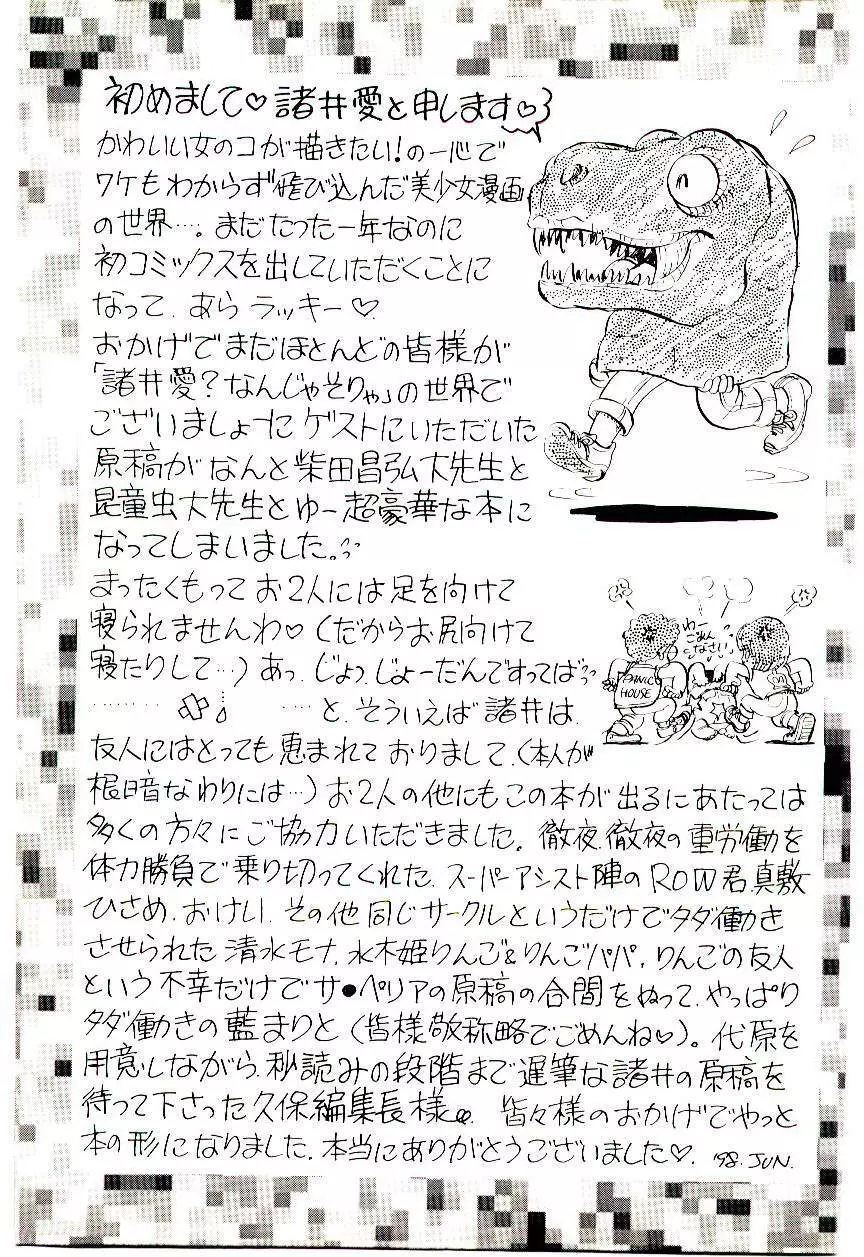 初めまして♡諸井愛と申します♡
かわいい女のコが描きたい!の一心で
ワケもわからず飛び込んだ美少女漫画
の世界…。まだたった一年なのに
初コミックスを出していただくことに
なって、あらラッキー♡
おかげでまだほとんどの皆様が
「諸井愛?なんじゃそりゃ」の世界で
ございましょーに ゲストにいただいた
原稿がなんと柴田昌弘大先生と
昆童虫大先生とゆー超豪華な本に
なってしまいました。
まったくもってお2人には足を向けて
寝られませんわ♡(だからお尻向けて
寝たりして…)あっ、じょっ、じょーだんですってば
わー
ごめん
なさい
PANIC
HOUSE
………… …‥と、そういえば諸井は、
友人にはとっても恵まれておりまして、(本人が
根暗なわりには…)お2人の他にもこの本が出るにあたっては
多くの方々にご協力いただきました。徹夜、徹夜の重労働を
体力勝負で乗り切ってくれた、スーパーアシスト陣のROW君、真敷
ひさめ、おけい、その他同じサークルというだけでタダ働き
させられた清水モナ、水木姫りんご&りんごパパ、りんごの友人
という不幸だけでサ●ペリアの原稿の合間をぬって、やっぱり
タダ働きの藍まりと(皆様敬称略でごめんね♡)。代原を
用意しながら、秒読みの段階まで遅筆な諸井の原稿を
待って下さった久保編集長様。皆々様のおかげでやっと
本の形になりました。本当にありがとうございました♡. '98. JUN.